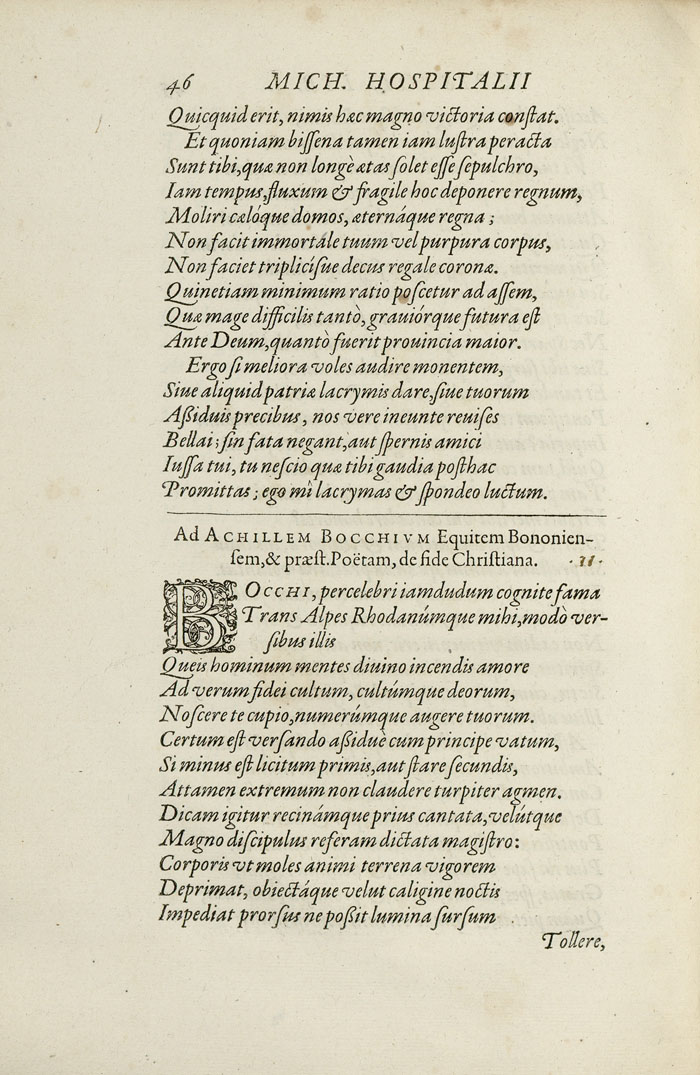 46 MICH. HOSPITALII
Quicquid erit, nimis hæc magno victoria conſtat.
Et quoniam biſſena tamen iam luſtra peracta
Sunt tibi, quæ non longè ætas ſolet eſſe ſepulchro,
Iam tempus, fluxum & fragile hoc deponere regnum,
Moliri cælóque domos, æternáque regna;
Non facit immortale tuum vel purpura corpus,
Non faciet tripliciſue decus regale coronæ.
Quinetiam minimum ratio poſcetur ad aſſem,
Quæ mage difficilis tantò, grauiórque futura eſt
Ante Deum, quantò fuerit prouincia maior.
Ergo ſi meliora voles audire monentem,
Siue aliquid patriæ lacrymis dare, ſiue tuorum
Aßiduis precibus, nos vere ineunte reuiſes
Bellai; ſin fata negant, aut ſpernis amici
Iuſſa tui, tu neſcio quæ tibi gaudia poſthac
Promittas; ego mî lacrymas & ſpondeo luctum.
Ad ACHILLEM BOCCHIVM Equitem Bononien-
ſem, & præſt. Poëtam, de fide Chriſtiana. · 11 ·
BOCCHI, percelebri iamdudum cognite fama
Trans Alpes Rhodanúmque mihi, modò ver-
ſibus illis
Queis hominum mentes diuino incendis amore
Ad verum fidei cultum, cultúmque deorum,
Noſcere te cupio, numerúmque augere tuorum.
Certum eſt verſando aßiduè cum principe vatum,
Si minus eſt licitum primis, aut ſtare ſecundis,
Attamen extremum non claudere turpiter agmen.
Dicam igitur recinámque prius cantata, velútque
Magno diſcipulus referam dictata magiſtro:
Corporis vt moles animi terrena vigorem
Deprimat, obiectáque velut caligine noctis
Impediat prorſus ne poßit lumina ſurſum
Tollere,